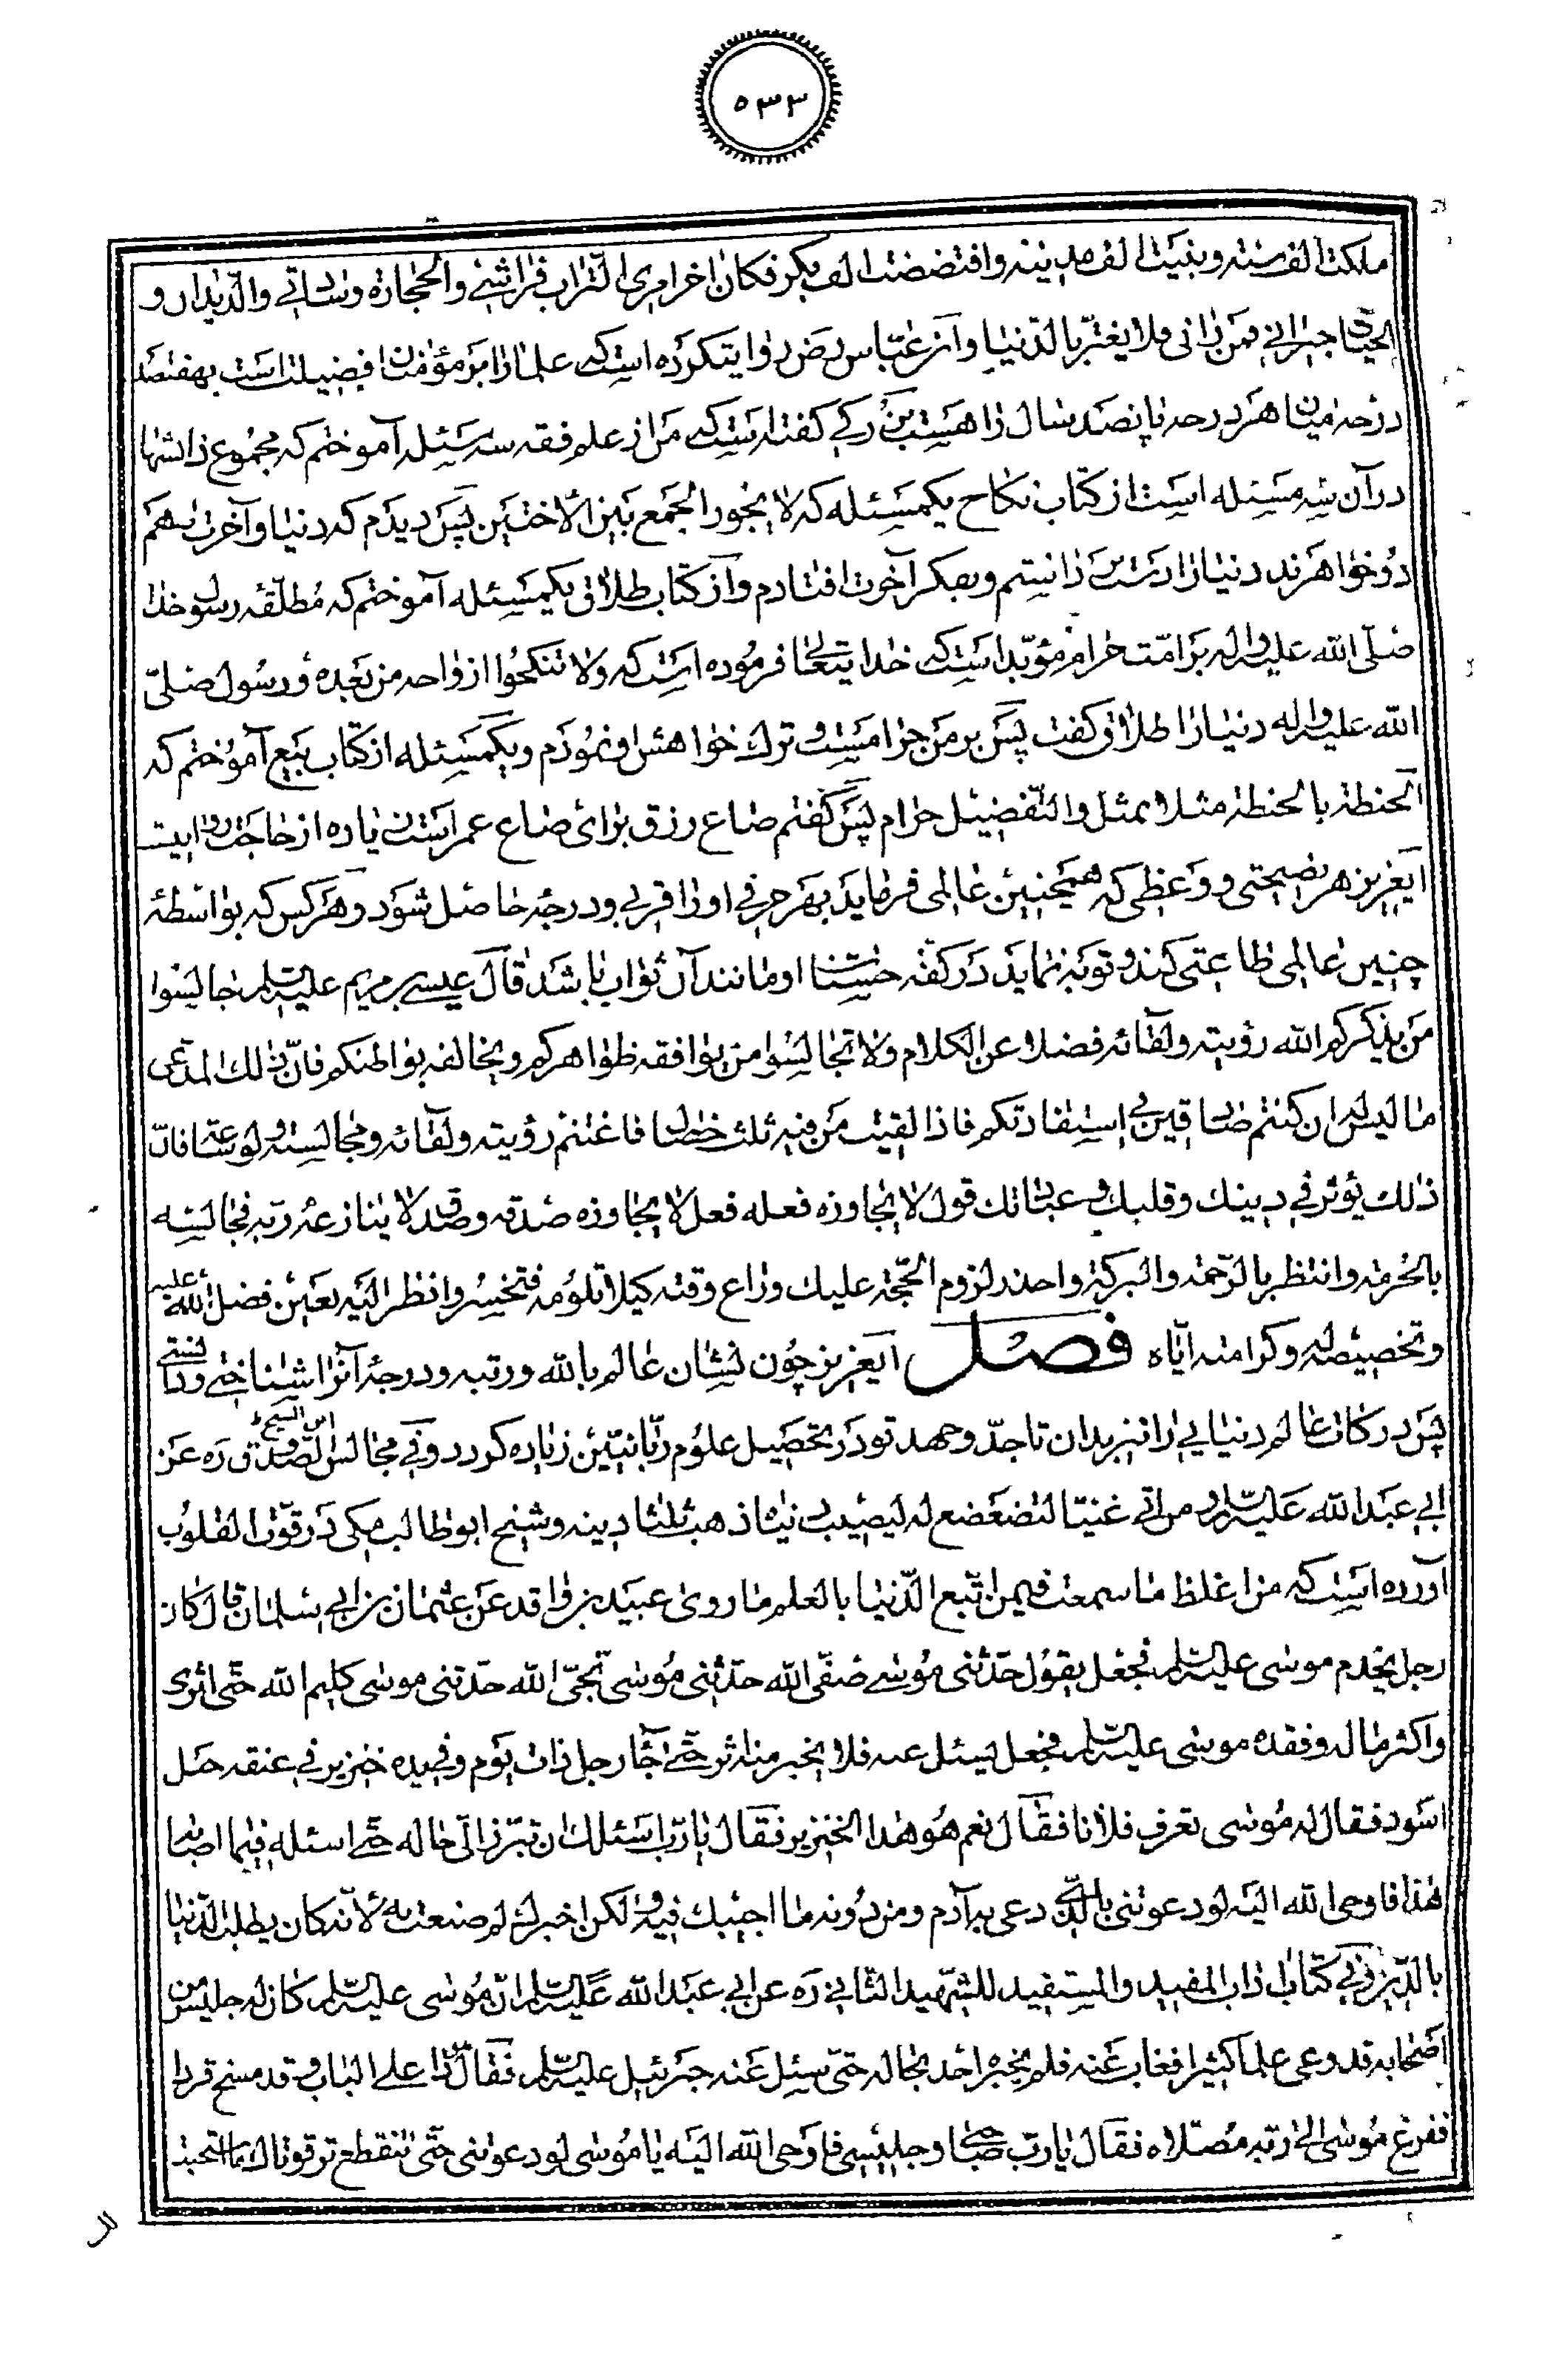 ٥٣٣
ملکت الف سنته وبنیت الف مدینه وافتضضت الف بکر فکان اخر امری التراب فراشی والحجارة وسادتی والدیدان و
الحیّات جیرانی فمن رانی فلا یغترّ بالدّنیا وآز عبّاس رض روایتکرده است که علما را بر مؤمنان فضیلت است بهفتصد
درجه میان هر درجه پانصد سال راهست بزرکی کفته است که من از علم فقه سه مسئله آموختم که مجموع دانشها
در آن سه مسئله است از کتاب نکاح یکمسئله که لا یجوز الجمع بین الاختین پس دیدم که دنیا و آخرت بهم
دو خواهرند دنیا را دانستم و بفکر آخرت افتادم و آز کتاب طلاق یکمسئله آموختم که مطلّقه رسول خدا
صلّی الله علیه واله بر امّت حرام مؤبّد است که خدایتعالی فرموده است که ولا تنکحوا ازواجه من بعده و رسول صلّی
الله علیه واله دنیا را طلاق کفت پس بر من حرامست و ترک خواهش او نمودم و یکمسئله از کتاب بیع آموختم که
الحنطة بالحنطة مثلا بمثل والتفضیل حرام پس کفتم صاع رزق برای صاع عمر است زیاده از حاجت روا نیست
ایعزیز هر نصیحتی و وعظی که همچنین عالمی فرماید بهر حرفی او را قربی و درجه حاصل شود و هر کس که بواسطهٔ
چنین عالمی طاعتی کند و توبه نماید در کفّه حسنات او مانند آن ثواب باشد قال عیسی بن مریم علیه السّلام جالسوا
من یذکرکم الله رؤیته ولقائه فضلا عن الکلام ولا تجالسوا من یوافقه ظواهرکم ویخالفه بواطنکم فانّ ذلك المدّعی
ما لیس له ان کنتم صادقین فی استفادتکم فاذا لقیت من فیه ثلث خصال فاغتنم رؤیته ولقائه ومجالسته ولو ساعة فانّ
ذلك یؤثر فی دینك وقلبك وعباداتك قول لا یجاوزه فعله فعل لا یجاوزه صدقه وصدق لا ینازعه ربّه فجالسه
بالحرمة وانتظر بالرّحمة والبرکة واحذر لزوم الحجّة علیك وراع وقته کیلا تلومه فتخسر وانظر الیه بعین فضل الله علیه
وتخصیصه له وکرامته ایّاه فصل ایعزیز چون نشان عالم بالله و رتبه و درجه آنرا شناختی و دانستی
پس درکات عالم دنیایی را نیز بدان تا جدّ و جهد تو در تحصیل علوم ربّانیّین زیاده کردد وفی مجالس ابن الشیخ الصّدوق ره عن
ابی عبد الله علیه السّلام من اتی غنیّا لتضعضع له لیصیب دنیاه ذهب ثلثا دینه و شیخ ابو طالب مکی در قوّت القلوب
آورده است که من اغلظ ما سمعت فیمن اتّبع الدّنیا بالعلم ما روی عبید بن واقد عن عثمان بن ابی سلمان قال کان
رجل یخدم موسی علیه السّلم فجعل یقول حدّثنی موسی صفّی الله حدّثنی موسی نجّی الله حدّثنی موسی کلیم الله حتّی اثری
واکثر ماله وفقده موسی علیه السّلم فجعل یسئل عنه فلا یخبر منه اثر حتّی جاء رجل ذات یوم وفی یده خنزیر فی عنقه حبل
اسود فقال له موسی تعرف فلانا فقال نعم هو هذا الخنزیر فقال یا ربّ اسئلك ان تردّ الی حاله حتّی اسئله فیما اصابه
هذا فاوحی الله الیه لو دعوتنی بالّذی دعی به آدم ومن دونه ما اجبتك فیه ولکن اخبرك لم صنعت به لانّه کان یطلب الدّنیا
بالدّین وفی کتاب اداب المفید والمستفید للشّهید الثّانی ره عن ابی عبد الله علیه السّلم انّ موسی علیه السّلم کان له جلیس من
اصحابه قد وعی علما کثیرا فغاب عنه فلم یخبره احد بحاله حتّی سئل عنه جبرئیل علیه السّلم فقال له ذا علی الباب وقد مسخ قردا
ففزع موسی الی ربّه مصلاه فقال یا ربّ صاحبی وجلیسی فاوحی الله الیه یا موسی لو دعوتنی حتّی تنقطع ترقوتاك ما استجبت